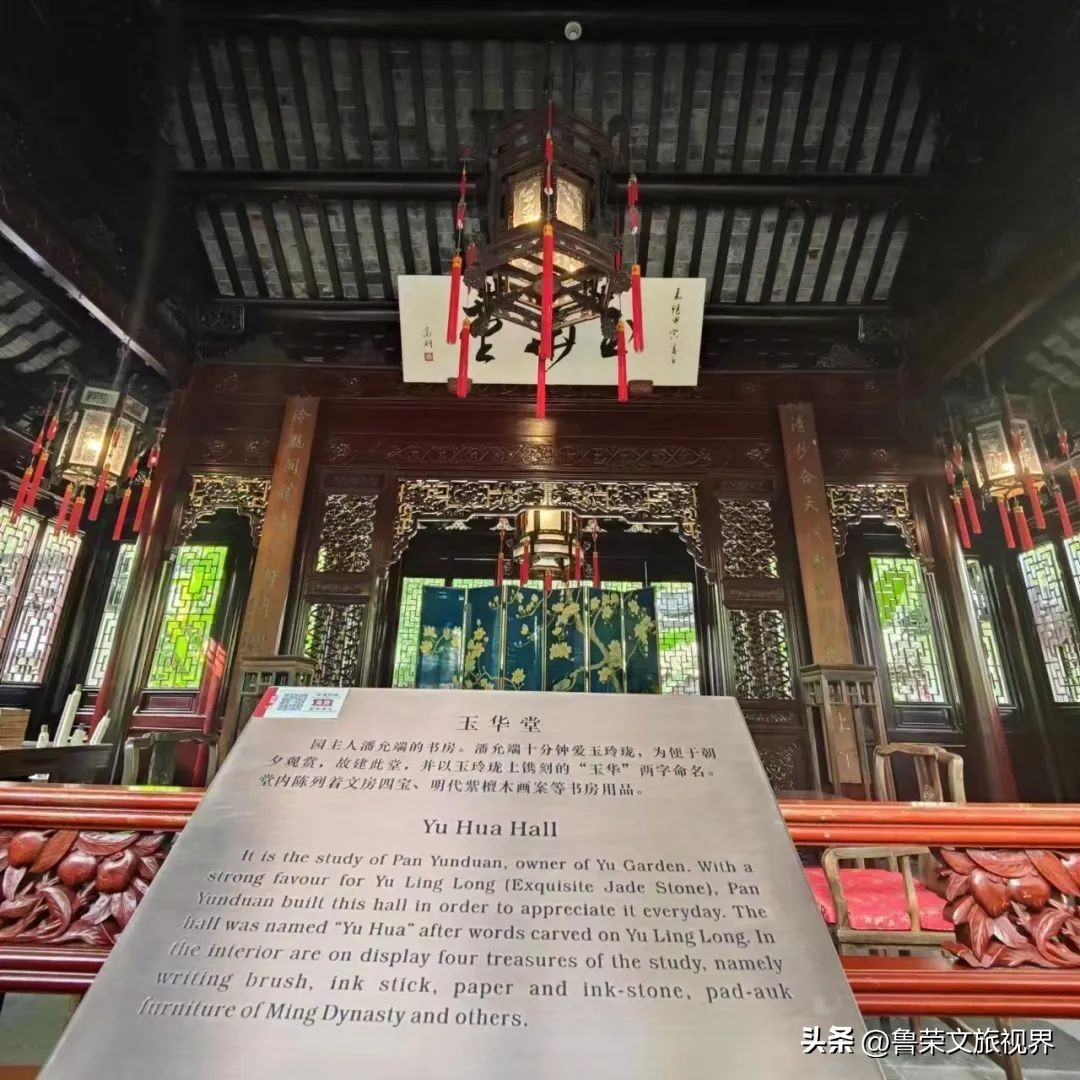 玉华堂
园主人潘允端的书房。潘允端十分钟爱玉玲珑，为便于朝
夕观赏，故建此堂，并以玉玲珑上镌刻的“玉华”两字命名。
堂内陈列着文房四宝、明代紫檀木画案等书房用品。
Yu Hua Hall
It is the study of Pan Yunduan, owner of Yu Garden. With a
strong favour for Yu Ling Long (Exquisite Jade Stone), Pan
Yunduan built this hall in order to appreciate it everyday. The
hall was named “Yu Hua” after words carved on Yu Ling Long. In
the interior are on display four treasures of the study, namely
writing brush, ink stick, paper and ink-stone, pad-auk
furniture of Ming Dynasty and others.
头条 @鲁荣文旅视界